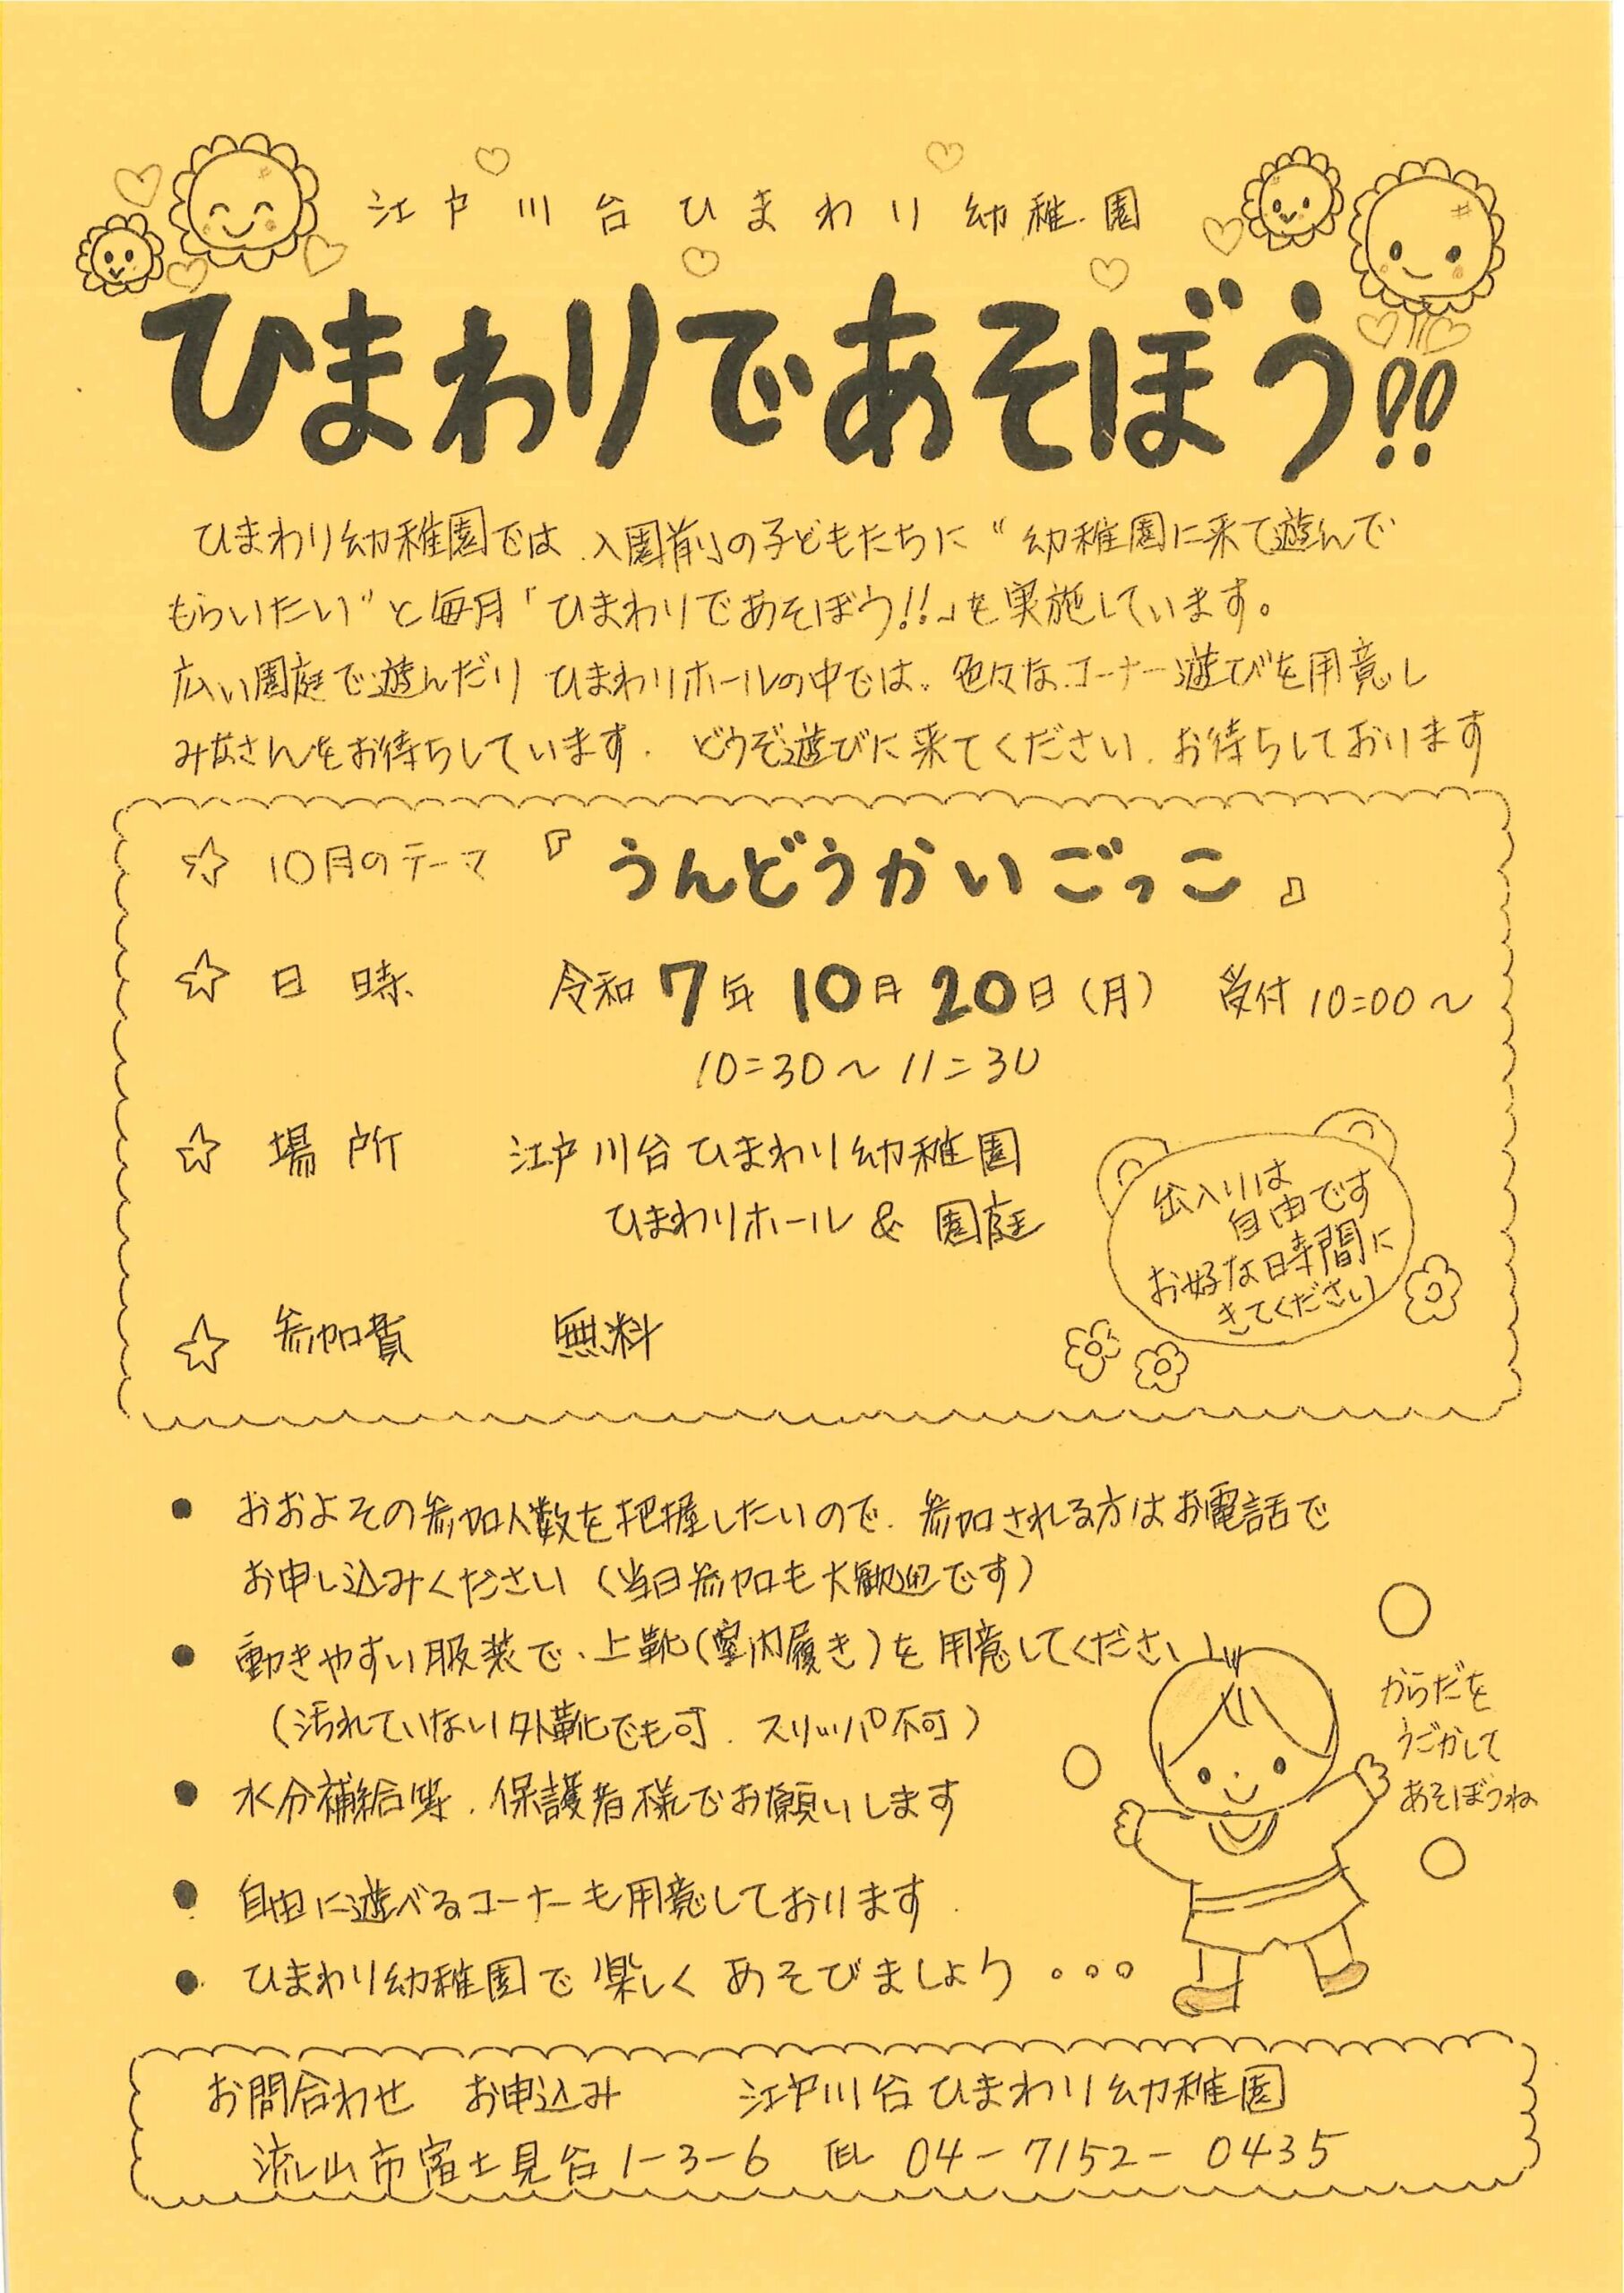 江戸川台ひまわり幼稚園
ひまわりであそぼう!!
ひまわり幼稚園では、入園前の子どもたちに“幼稚園に来て遊んで
もらいたい”と毎月「ひまわりであそぼう!!」を実施しています。
広い園庭で遊んだり ひまわりホールの中では、色々なコーナー遊びを用意し
みなさんをお待ちしています。どうぞ遊びに来てください。お待ちしております
☆ 10月のテーマ 『うんどうかいごっこ』
☆ 日時 令和7年10月20日(月) 受付10:00〜
10:30〜11:30
☆ 場所 江戸川台ひまわり幼稚園
ひまわりホール & 園庭
出入りは
自由です
お好な時間に
きてください
☆ 参加費 無料
● おおよその参加人数を把握したいので、参加される方はお電話で
お申し込みください(当日参加も大歓迎です)
● 動きやすい服装で、上靴(室内履き)を用意してください
(汚れていない外靴でも可、スリッパ不可)
● 水分補給等、保護者様でお願いします
● 自由に遊べるコーナーも用意しております。
● ひまわり幼稚園で楽しくあそびましょう。。。
からだを
うごかして
あそぼうね
お問合わせ お申込み 江戸川台ひまわり幼稚園
流山市富士見台1-3-6 TEL 04-7152-0435